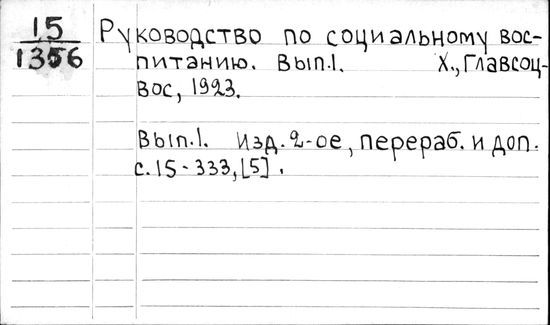 15
1356
Руководство по социальному вос-
питанию. Вып.1. Х., Главсоц-
вос, 1923.
Вып.1. Изд. 2-ое, перераб. и доп.
с. 15-333, [5].